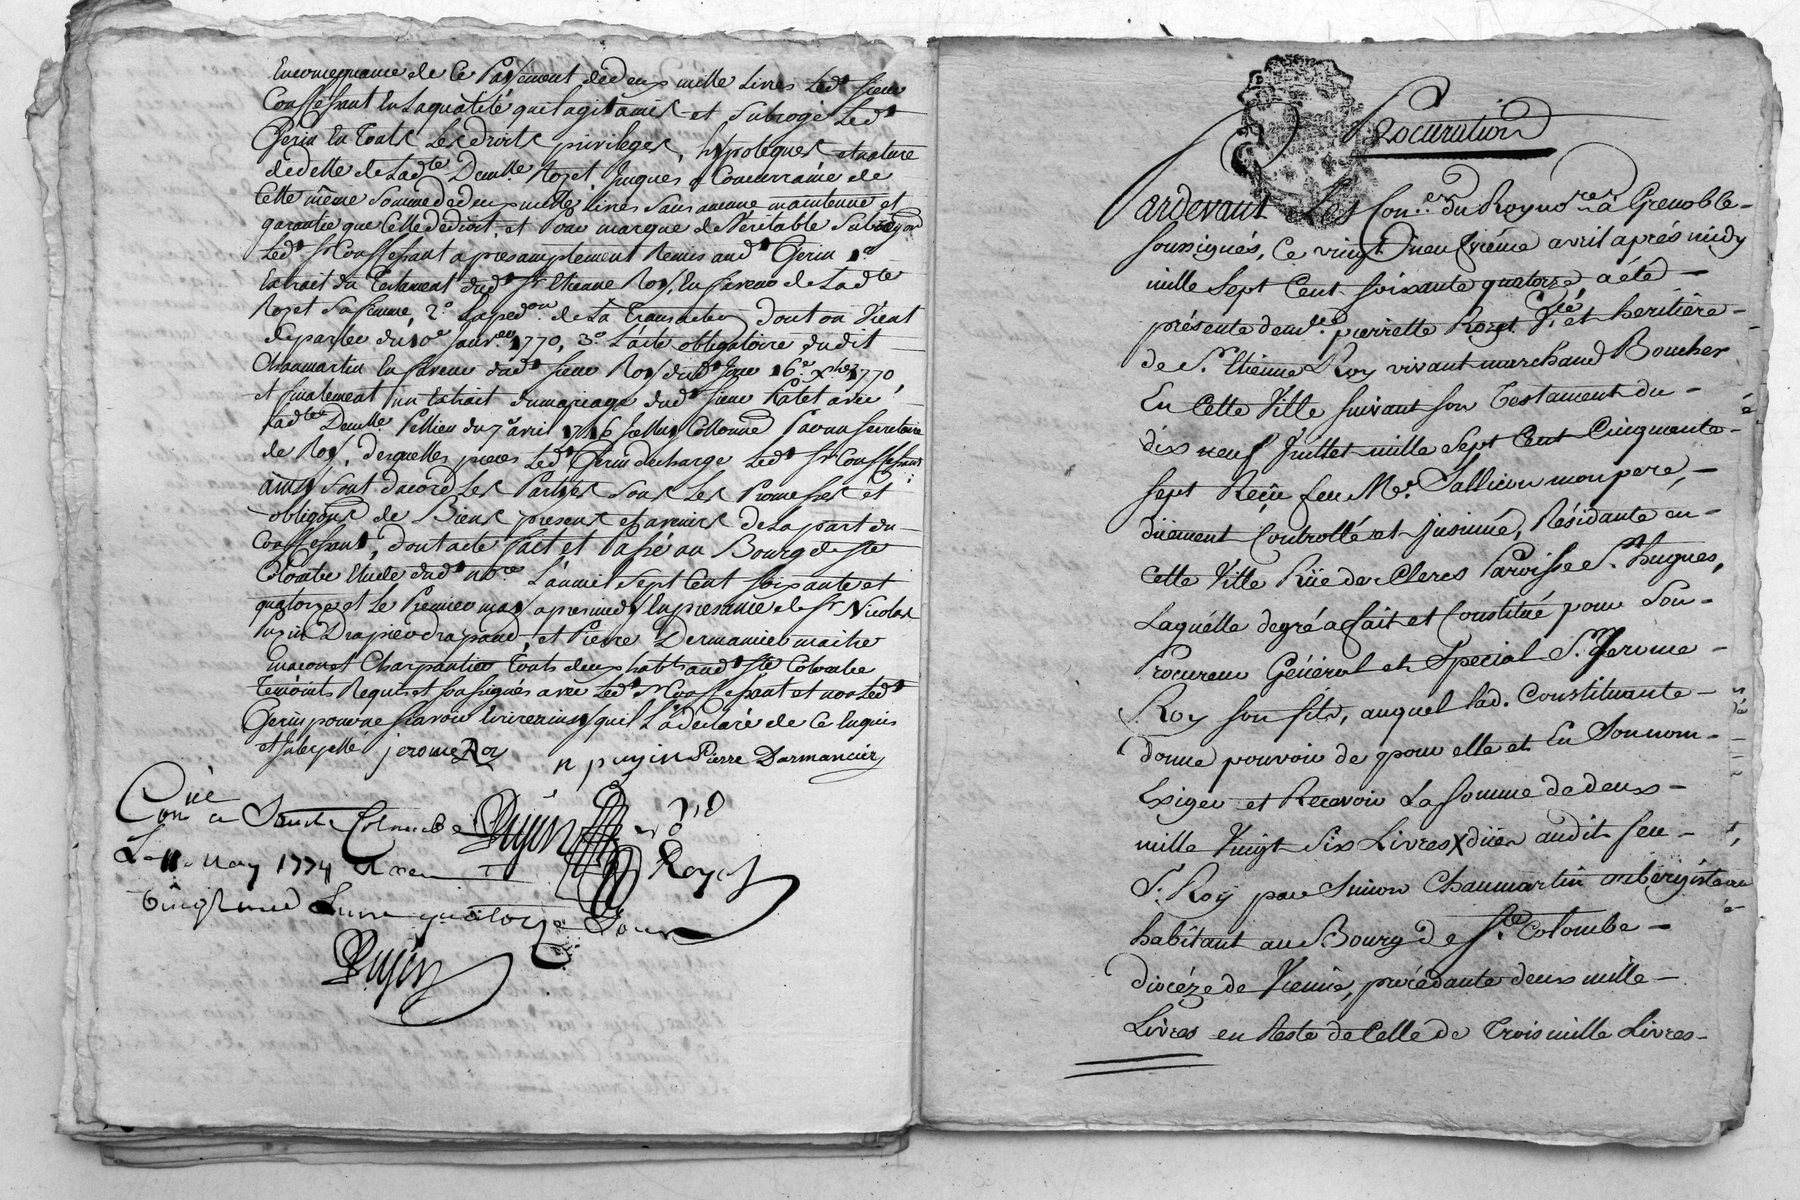 En consequance de Ce Payement de deux mille Livres Led.t sieur
Confessant En La qualité quil agit a mis et Subrogé Led.t
Gerin En Touts Les droits privileges, hypoteques et nature
de dette de Lad.te Dem.lle Rozet Jusques a Concurrance de
Cette même Somme de deux mille livres Sans aucune maintenue et
garantie que Celle de droit, et Pour marque de Veritable Subrogaon
Led.t S.r Confessant a presantement Remis aud.t Gerin 1.o
Extrait du Testament dud.t S.r Etienne Roy, En faveur de Lad.te
Rozet Sa femme, 2.o La ped.on de La Transaction dont on Vient
de parler du 10.e Janv.er 1770, 3.o L'acte obligatoire dudit
Chaumartin En faveur dud.t sieur Roy dud.t Jour 16.e Xbre 1770
et finalement un Extrait du mariage dud.t sieur Ratet avec
Lad.te Demlle Pellieu du 7.e avril 1746 Collonne Secretaire
de Roy, desquelles pieces Led.t Gerin decharge Led.t S.r Confessant
ainsy Sont dacord Les Parties Sous Les Promesses et
obligons de Biens presents et avenirs de La part du
Confessant, dont acte fait et Passé au Bourg de Ste
Colombe Etude dud.t no.re L'an mil Sept Cent Soixante et
quatorze et Le Premier may apres midy En presance de S.r Nicolas
Pujin Drapier drapand, et Pierre Dermancier maitre
macon et Charpantier Touts deux habtts aud.t Ste Colombe
Temoints Requis et Soussignés avec Led.t S.r Confessant et non Led.t
Gerin pour ne Scavoir Ecrire ainsy quil L'a declaré de Ce Enquis
et Interpellé jerome Roy
n pujin Pierre Darmancier
Con.né a Sainte Colombe Pujin
Le 11 May 1774 Rec
Royet
Vingt neuf Livres quatorze Sous
Pujin
Procuration
Pardevant Les Con.ers du Roy no.res à Grenoble
Soussignés, Ce vingt neufvième avril après midy
mille Sept Cent Soixante quatorze, a été
présente dem.lle pierrette Rozet V.ve et heritière
de S.r Etienne Roy vivant marchand Boucher
En Cette Ville Suivant Son Testament du
dix neuf Juillet mille Sept Cent Cinquante
Sept Reçû feu M.e Sallicon mon pere,
düement Controllé et jnsinué, Résidante en
Cette Ville Rüe des Clercs Paroisse S.t Hugues,
Laquélle de gré a fait et Constitué pour Son
Procureur Général et Special S.r Jerome
Roy Son fils, auquel lad. Constituante
donne pouvoir de pour elle et En Son nom
Exiger et Recevoir La Somme de deux
mille Vingt Six Livres düe audit feu
S.r Roy par Simon Chaumartin aubergiste
habitant au Bourg de S.te Colombe
Diocéze de Vienne, procédante deux mille
Livres en Reste de Celle de Trois mille Livres